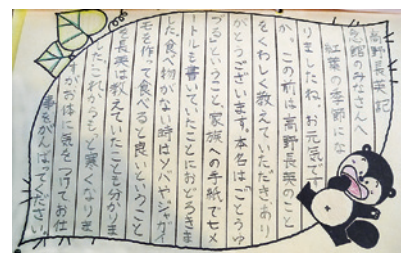 高野長英記
念館のみなさんへ
紅葉の季節にな
りましたね。お元気です
か。この前は高野長英のこと
をくわしく教えていただき、あり
がとうございます。本名はごとうゆ
づるということ、家族への手紙で七メ
ートルも書いていたことにおどろきま
した。食べ物がない時はソバやジャガイ
モを作って食べると良いということ
を長英は教えていたことも分かりま
した。これからもっと寒くなりま
すがお体に気をつけてお仕
事をがんばってください。